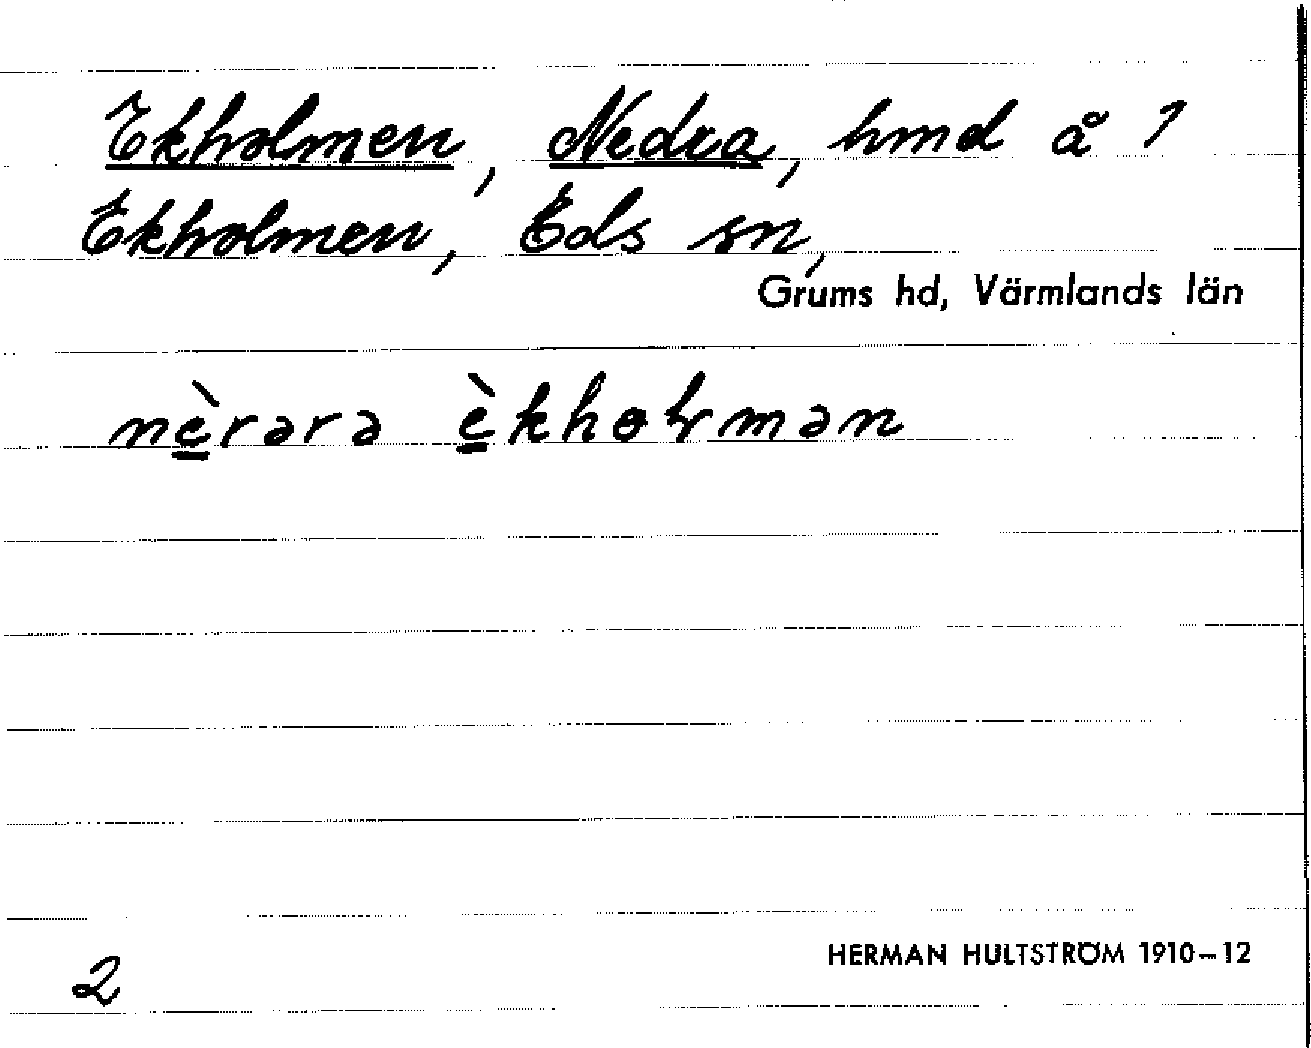 Ekholmen, Nedra, hmd å 1
Ekholmen, Eds sn,
Grums hd, Värmlands län
nè̱rərə è̱khoɽmən
2
HERMAN HULTSTRÖM 1910–12